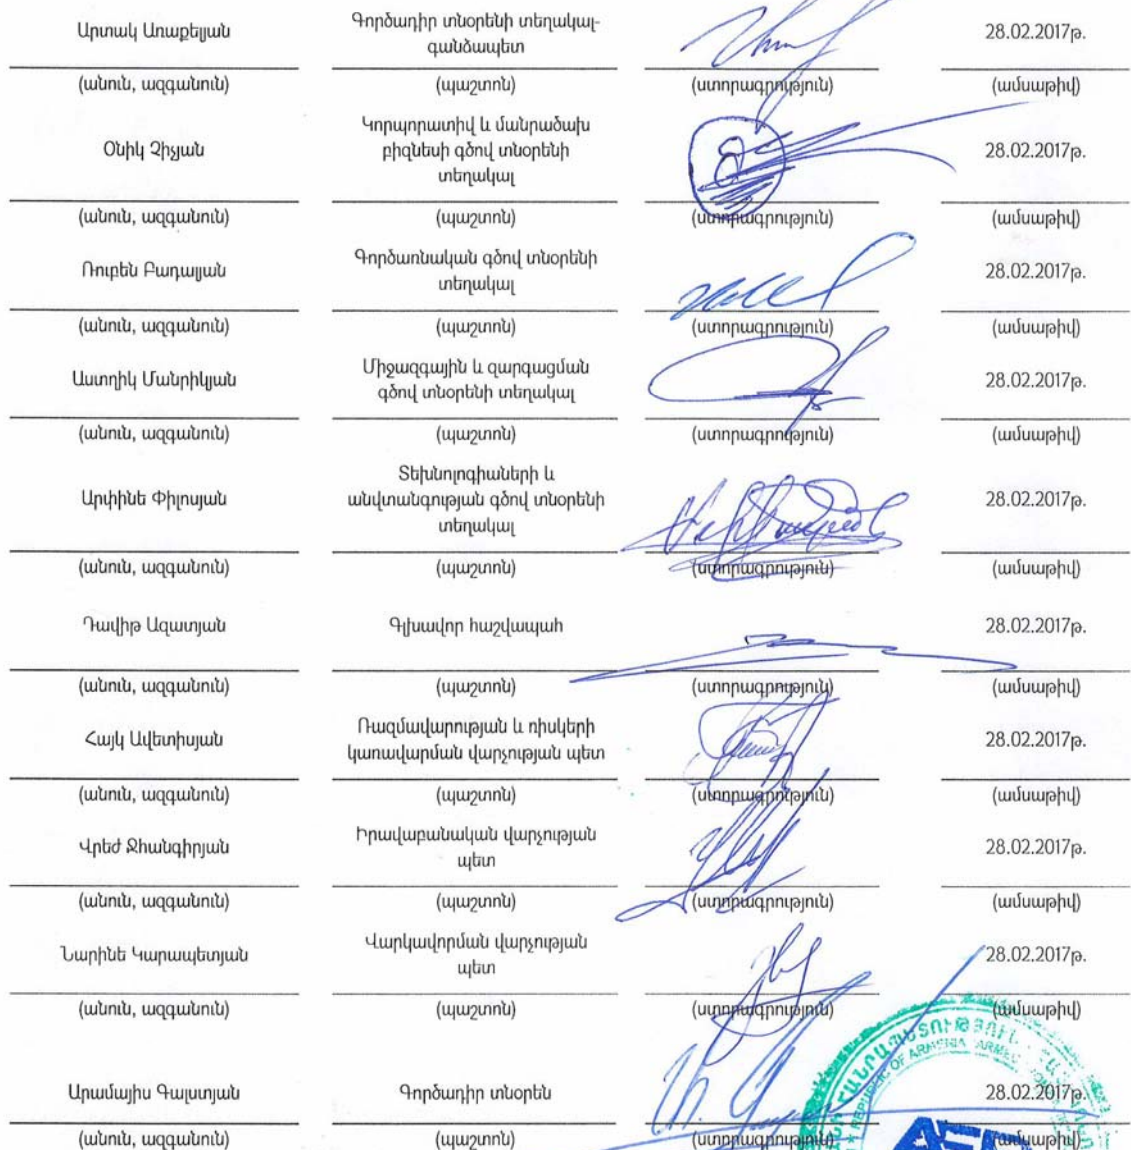 Արտակ Առաքելյան Գործադիր տնօրենի տեղակալ- 28.02.2017թ.
գանձապետ
(անուն, ազգանուն) (պաշտոն) (ստորագրություն) (ամսաթիվ)
Օնիկ Չիչյան Կորպորատիվ և մանրածախ 28.02.2017թ.
բիզնեսի գծով տնօրենի
տեղակալ
(անուն, ազգանուն) (պաշտոն) (ստորագրություն) (ամսաթիվ)
Ռուբեն Բադալյան Գործառնական գծով տնօրենի 28.02.2017թ.
տեղակալ
(անուն, ազգանուն) (պաշտոն) (ստորագրություն) (ամսաթիվ)
Աստղիկ Մանրիկյան Միջազգային և զարգացման 28.02.2017թ.
գծով տնօրենի տեղակալ
(անուն, ազգանուն) (պաշտոն) (ստորագրություն) (ամսաթիվ)
Արփինե Փիլոսյան Տեխնոլոգիաների և 28.02.2017թ.
անվտանգության գծով տնօրենի
տեղակալ
(անուն, ազգանուն) (պաշտոն) (ստորագրություն) (ամսաթիվ)
Դավիթ Ազատյան Գլխավոր հաշվապահ 28.02.2017թ.
(անուն, ազգանուն) (պաշտոն) (ստորագրություն) (ամսաթիվ)
Հայկ Ավետիսյան Ռազմավարության և ռիսկերի 28.02.2017թ.
կառավարման վարչության պետ
(անուն, ազգանուն) (պաշտոն) (ստորագրություն) (ամսաթիվ)
Վրեժ Ջհանգիրյան Իրավաբանական վարչության 28.02.2017թ.
պետ
(անուն, ազգանուն) (պաշտոն) (ստորագրություն) (ամսաթիվ)
Նարինե Կարապետյան Վարկավորման վարչության 28.02.2017թ.
պետ
(անուն, ազգանուն) (պաշտոն) (ստորագրություն) (ամսաթիվ)
REPUBLIC OF ARMENIA
Արամայիս Գալստյան Գործադիր տնօրեն 28.02.2017թ.
(անուն, ազգանուն) (պաշտոն) (ստորագրություն) (ամսաթիվ)